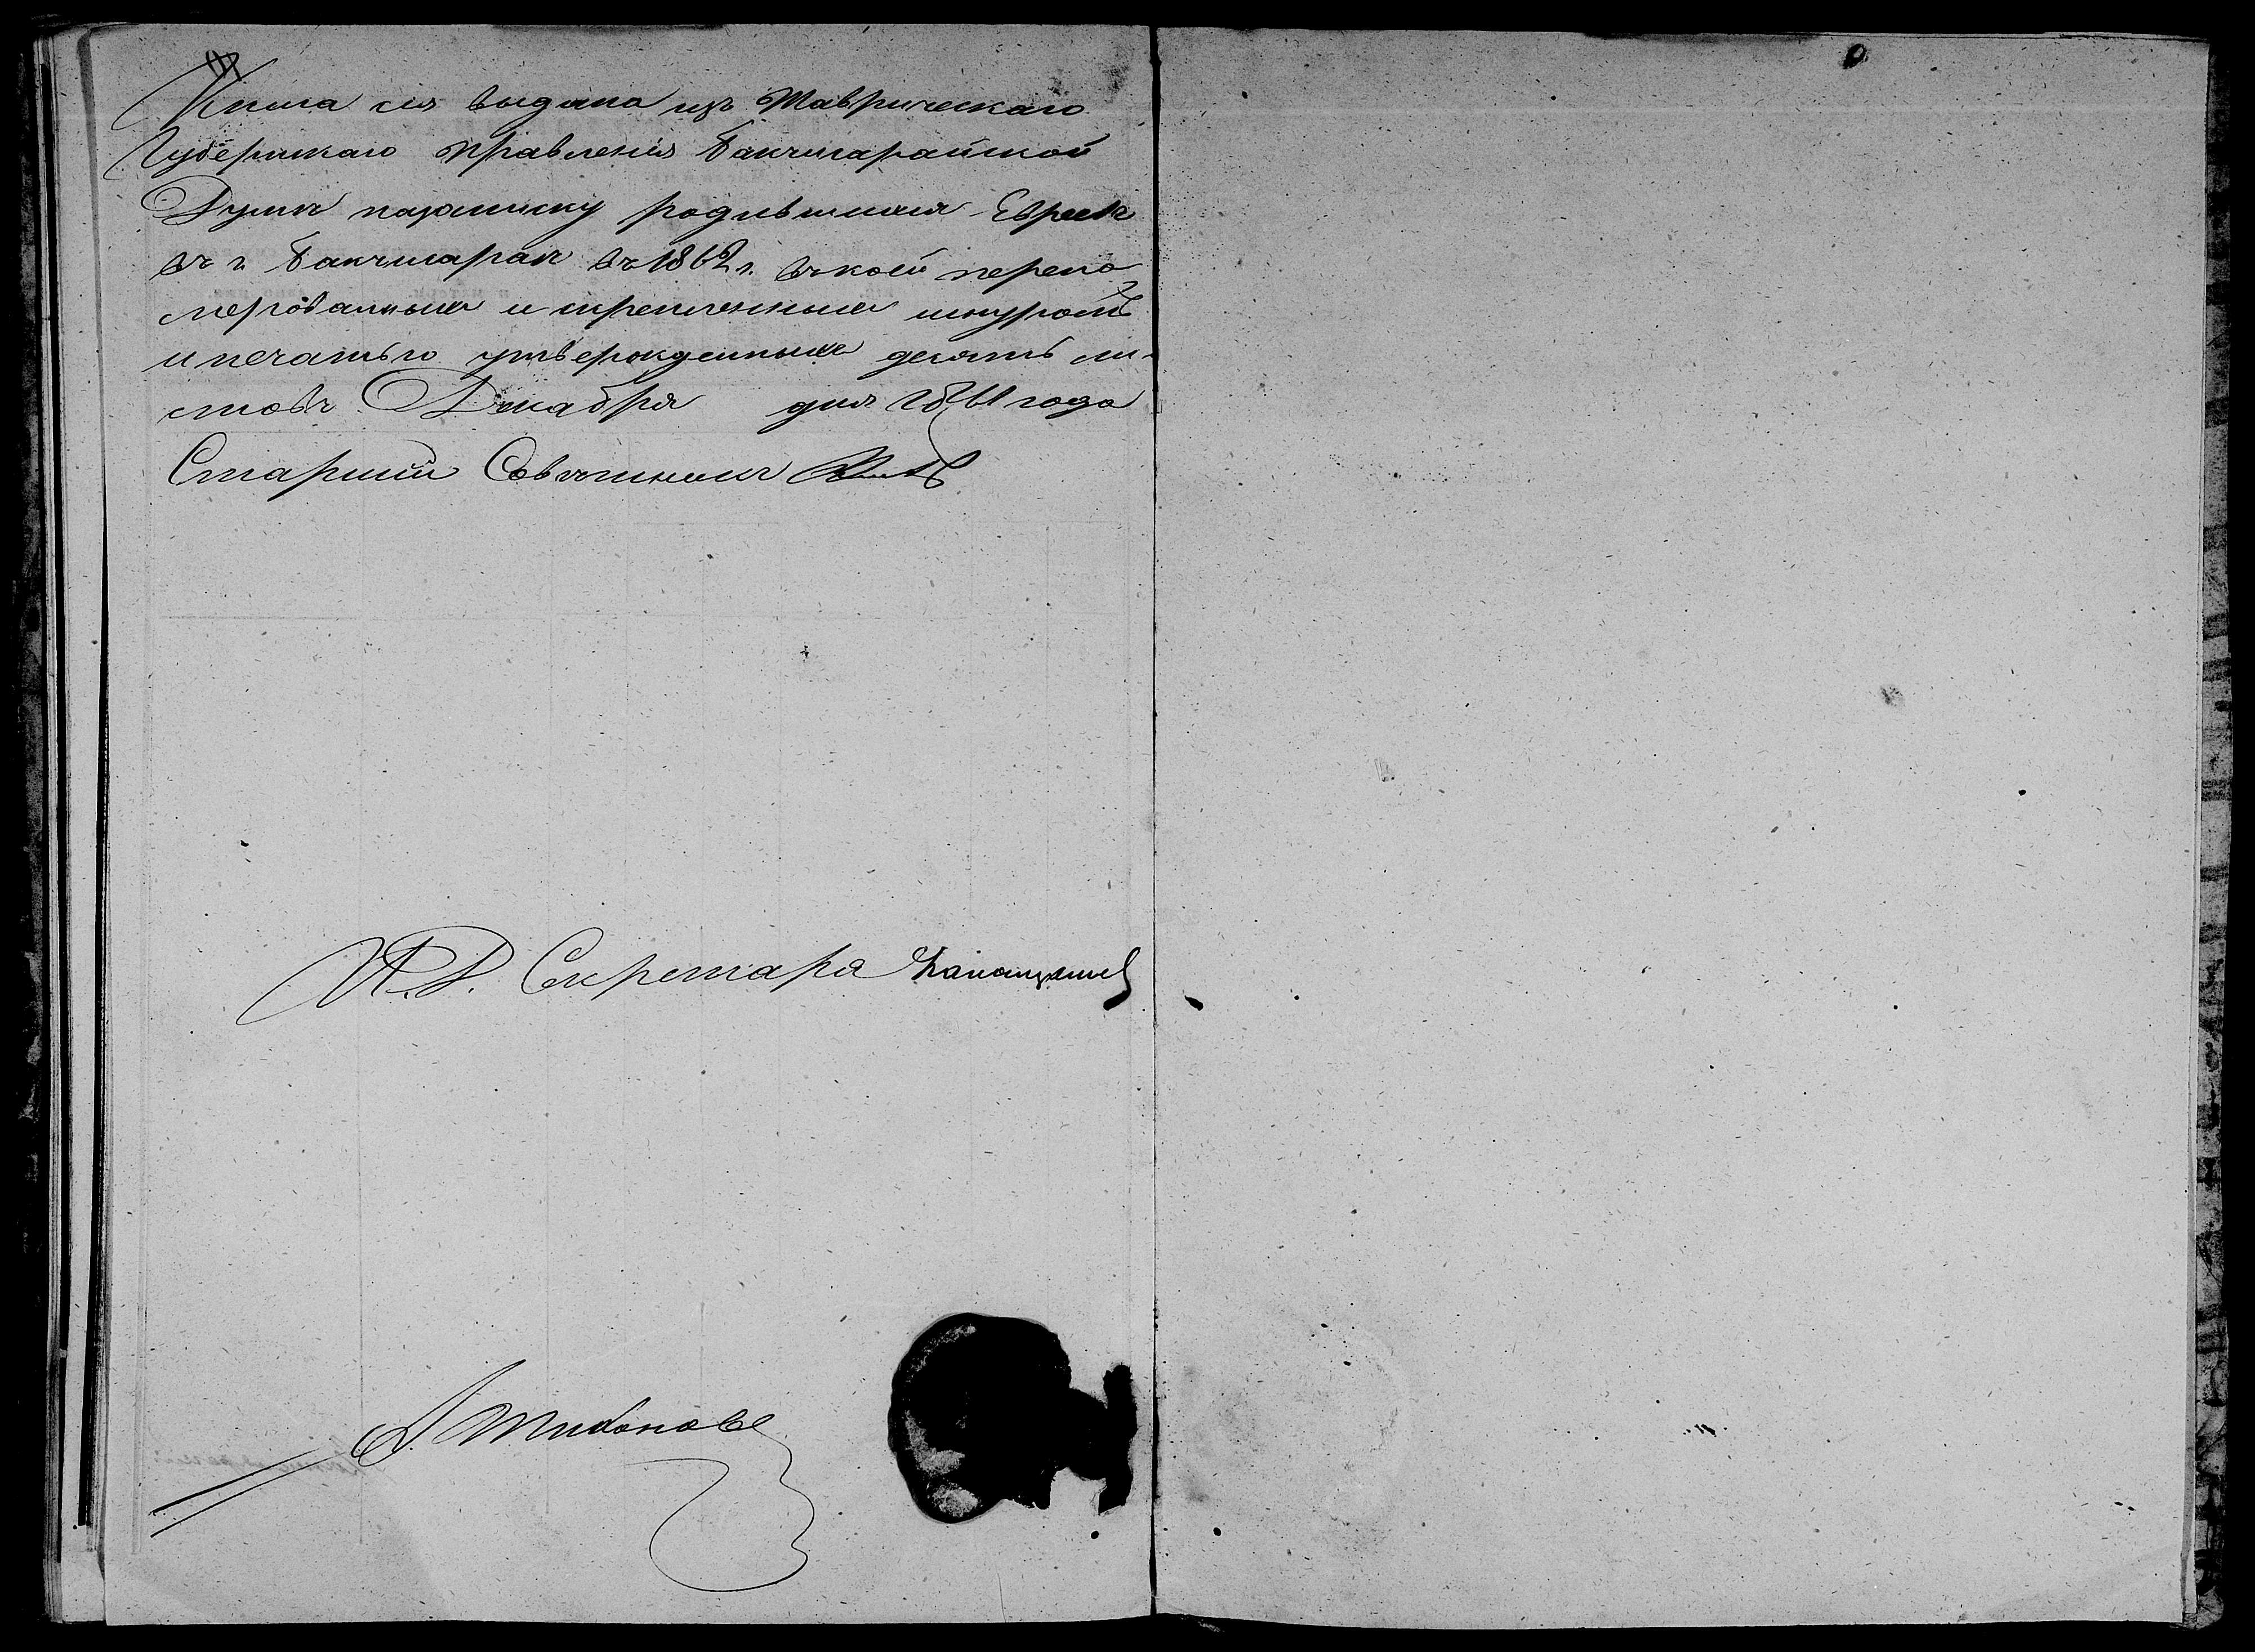 Книга сія выдана изъ Таврическаго
Губернскаго Правленія Бакчисарайской
Думѣ на записку родившихся Евреевъ
въ г. Бакчисараѣ въ 1862 г. въ коей перено
мерованныхъ и скрепленныхъ шнуромъ
и печатью утвержденныхъ десять ли-
стовъ Декабря дня 1861 года
Старшій Совѣтникъ
И. Д. Секретаря
А. Тихоновъ